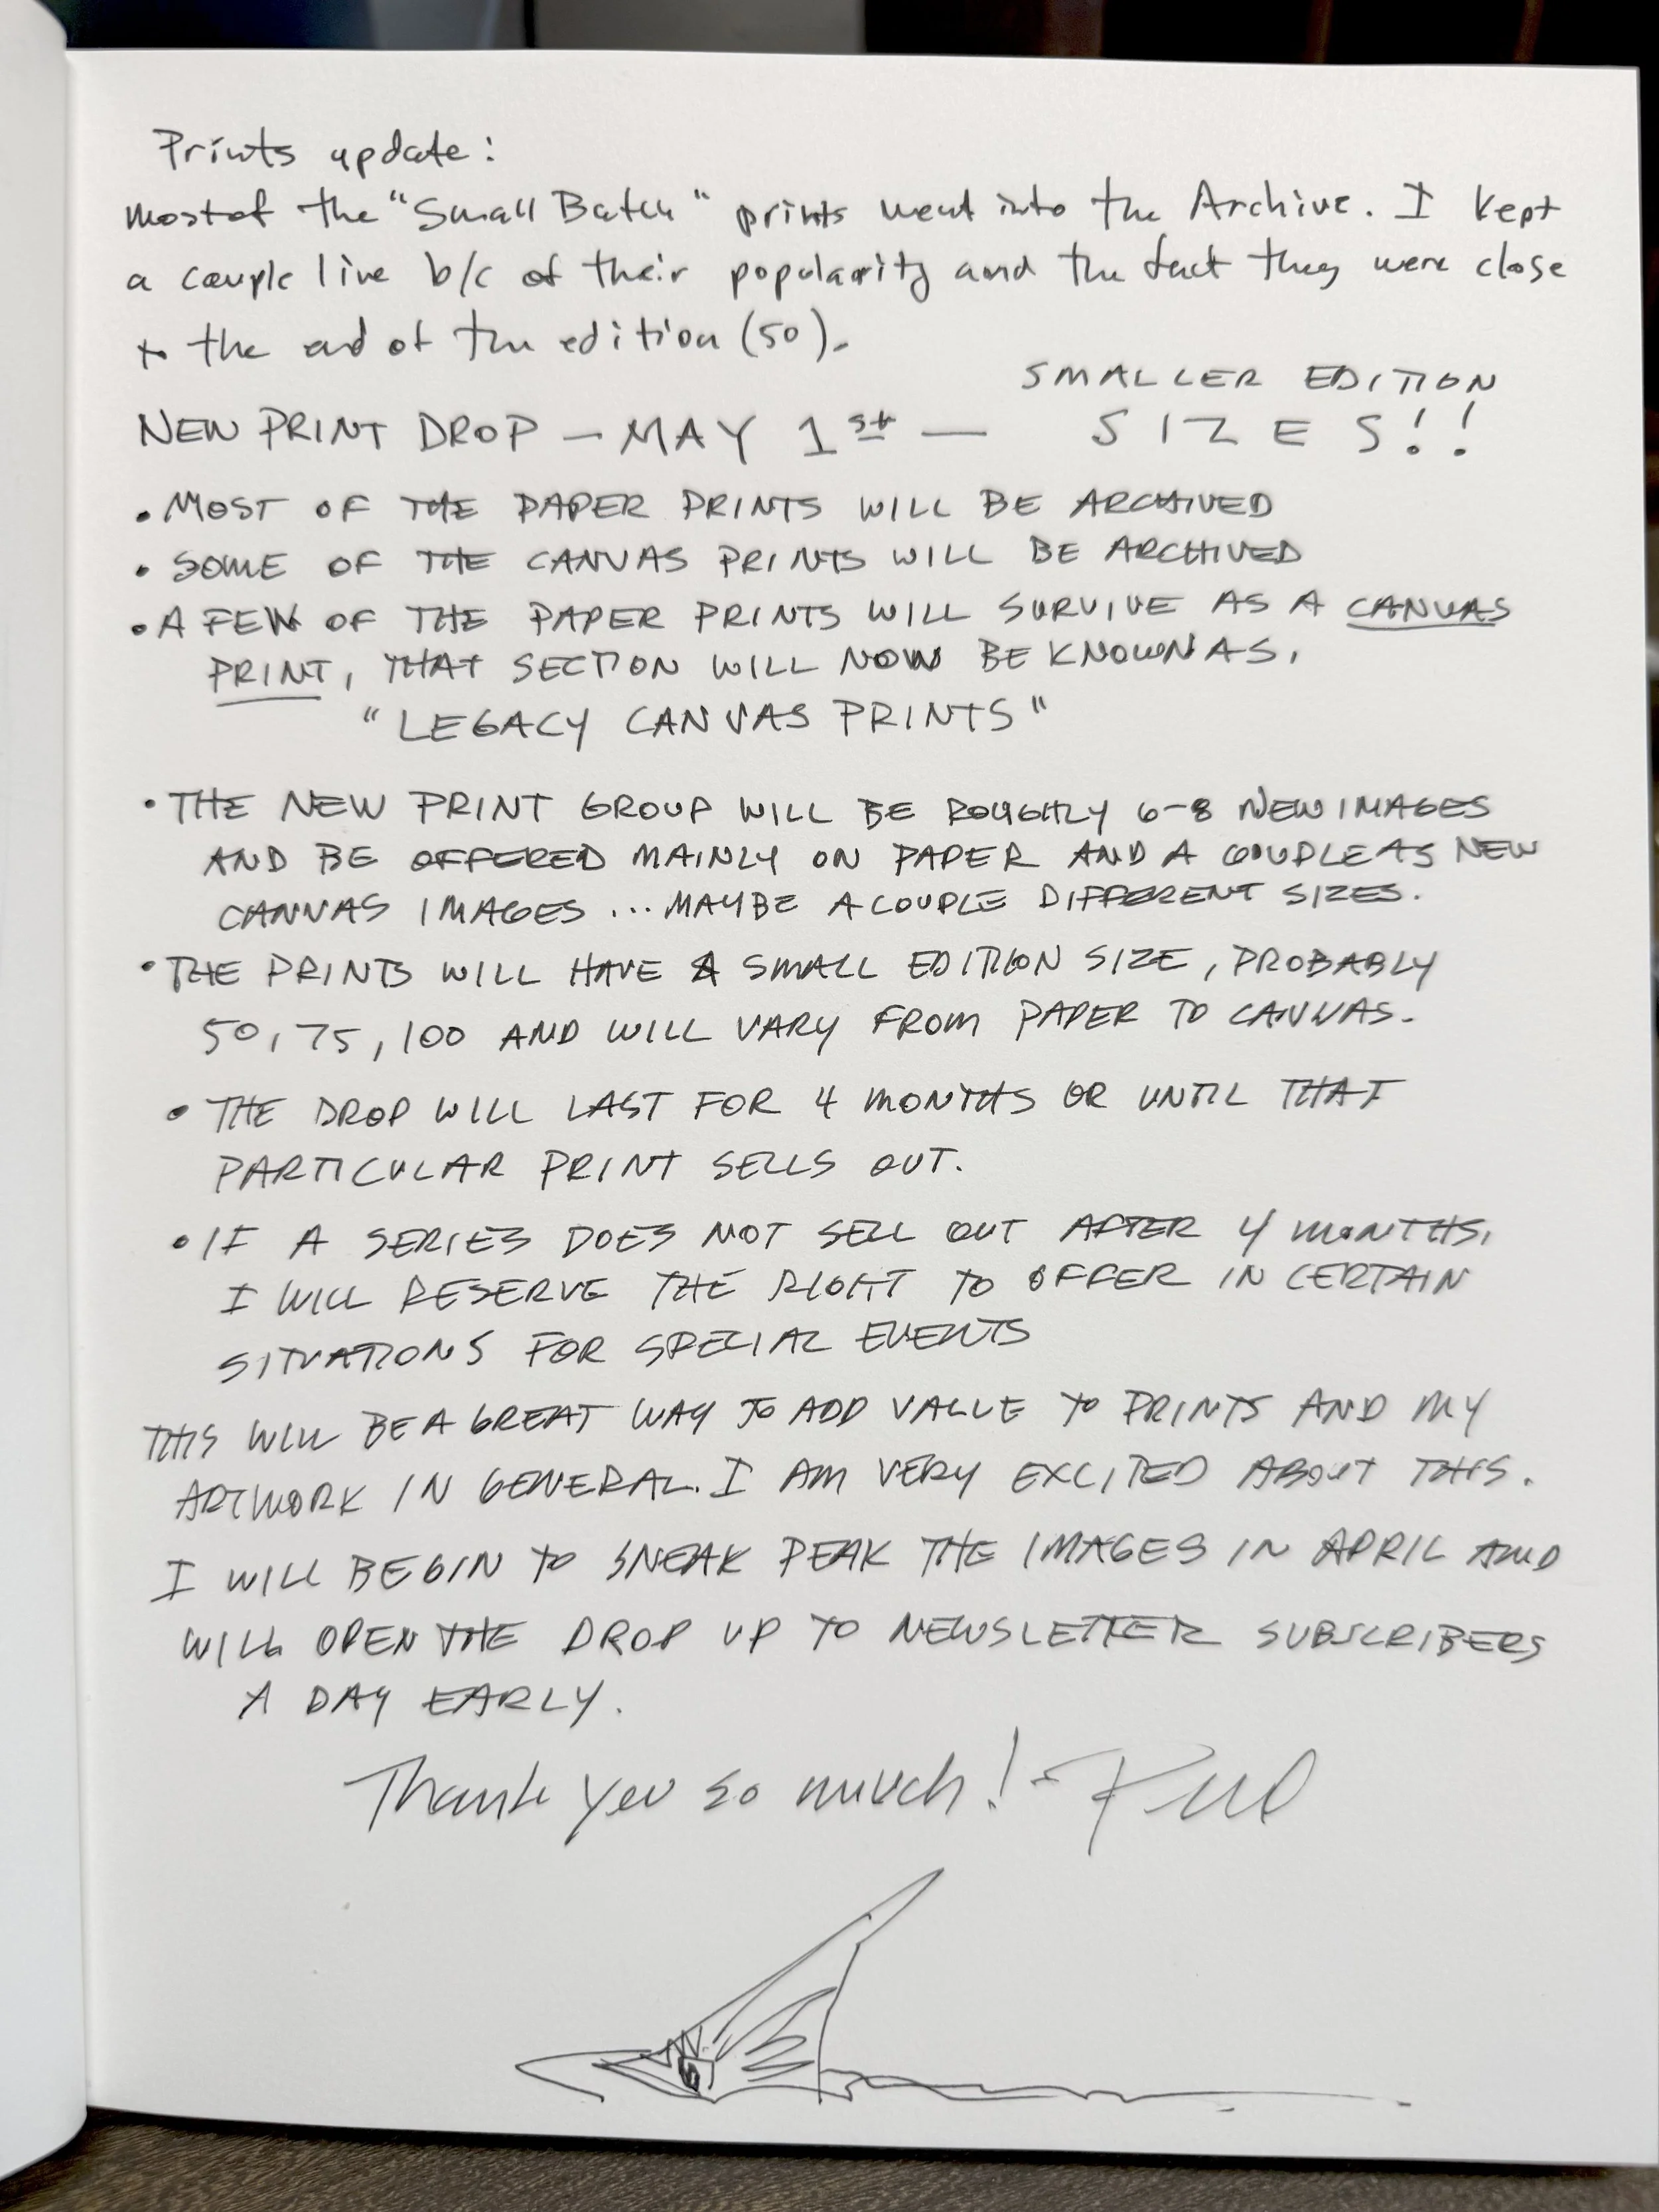 Prints update:
most of the "Small Batch" prints went into the Archive. I kept
a couple live b/c of their popularity and the fact they were close
to the end of the edition (50).
SMALLER EDITION
NEW PRINT DROP — MAY 1st — SIZES!!
• MOST OF THE PAPER PRINTS WILL BE ARCHIVED
• SOME OF THE CANVAS PRINTS WILL BE ARCHIVED
• A FEW OF THE PAPER PRINTS WILL SURVIVE AS A CANVAS
PRINT, THAT SECTION WILL NOW BE KNOWN AS,
"LEGACY CANVAS PRINTS"
• THE NEW PRINT GROUP WILL BE ROUGHLY 6-8 NEW IMAGES
AND BE OFFERED MAINLY ON PAPER AND A COUPLE AS NEW
CANVAS IMAGES ... MAYBE A COUPLE DIFFERENT SIZES.
• THE PRINTS WILL HAVE A SMALL EDITION SIZE, PROBABLY
50, 75, 100 AND WILL VARY FROM PAPER TO CANVAS.
• THE DROP WILL LAST FOR 4 MONTHS OR UNTIL THAT
PARTICULAR PRINT SELLS OUT.
• IF A SERIES DOES NOT SELL OUT AFTER 4 MONTHS,
I WILL RESERVE THE RIGHT TO OFFER IN CERTAIN
SITUATIONS FOR SPECIAL EVENTS
THIS WILL BE A GREAT WAY TO ADD VALUE TO PRINTS AND MY
ARTWORK IN GENERAL. I AM VERY EXCITED ABOUT THIS.
I WILL BEGIN TO SNEAK PEAK THE IMAGES IN APRIL AND
WILL OPEN THE DROP UP TO NEWSLETTER SUBSCRIBERS
A DAY EARLY.
Thank you so much! -